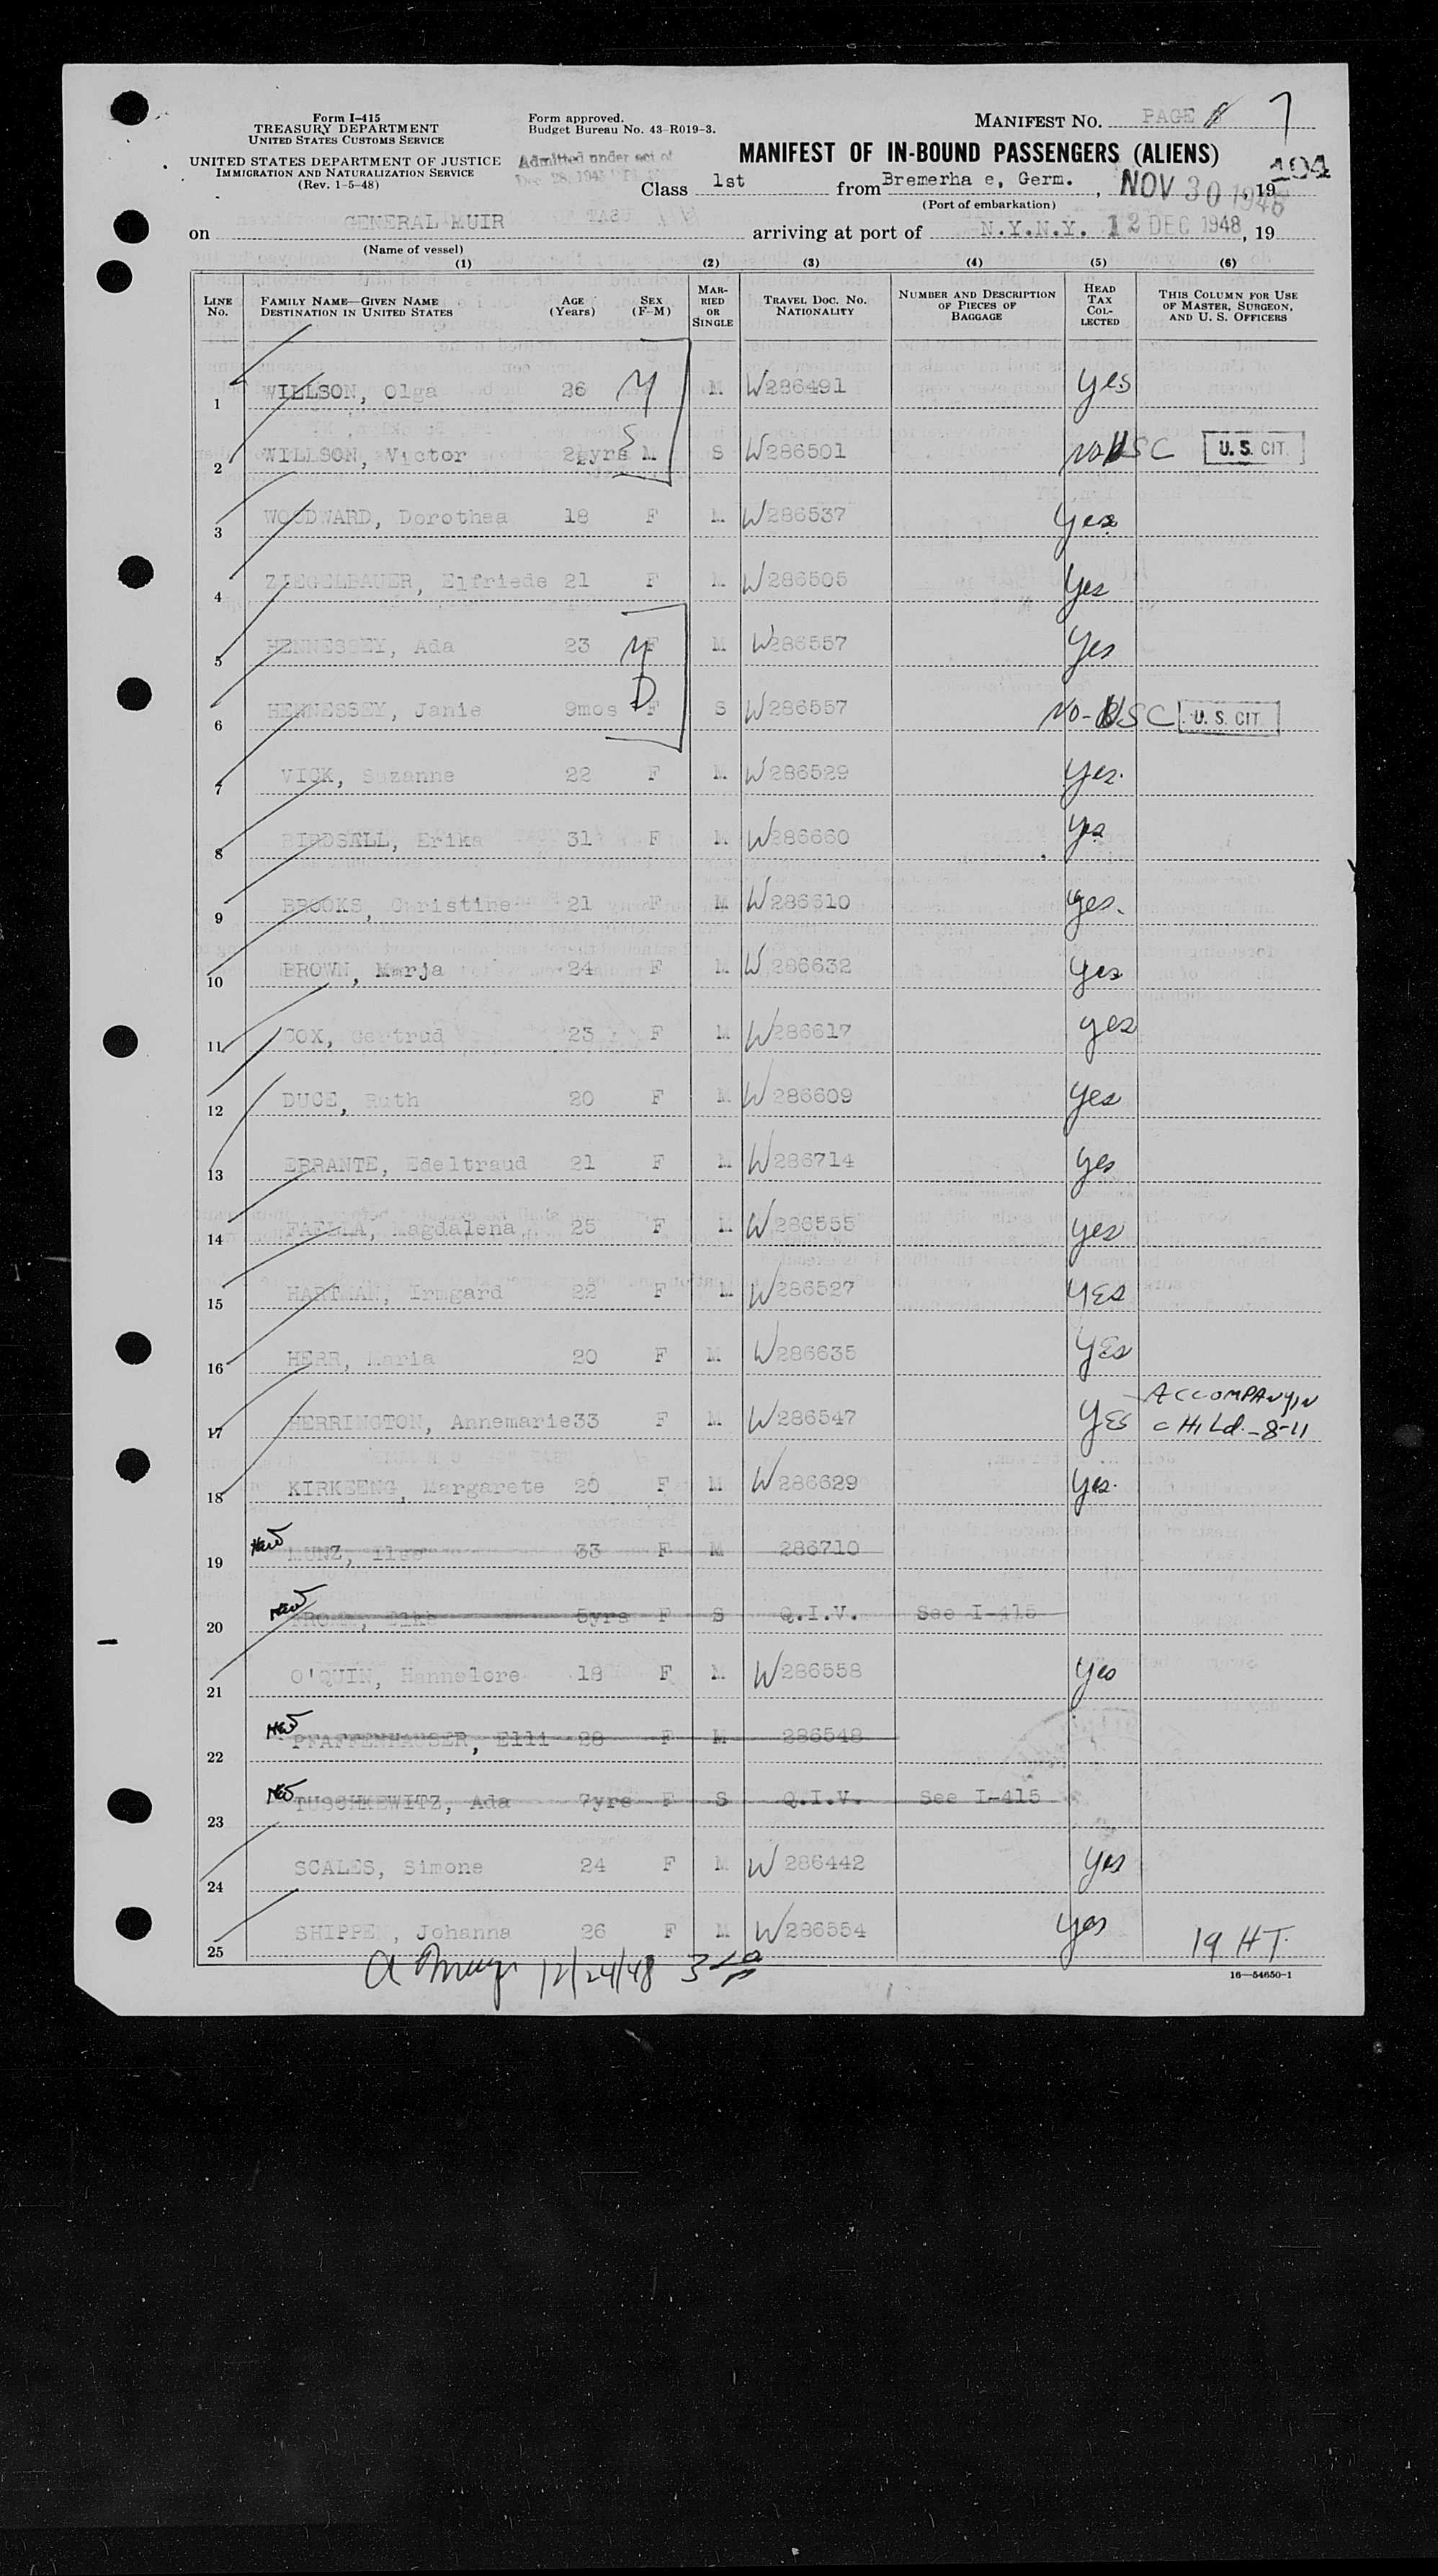 Form I-415
TREASURY DEPARTMENT
UNITED STATES CUSTOMS SERVICE
UNITED STATES DEPARTMENT OF JUSTICE
IMMIGRATION AND NATURALIZATION SERVICE
(Rev. 1-5-48)
Form approved.
Budget Bureau No. 43-R019-3.
Admitted under act of
Dec 28, 1945
MANIFEST NO. PAGE 7
MANIFEST OF IN-BOUND PASSENGERS (ALIENS)
104
Class 1st from Bremerha e, Germ., NOV 30 1948, 19
(Port of embarkation)
on GENERAL MUIR USAT arriving at port of N.Y.N.Y. 12 DEC 1948, 19
(Name of vessel)
(1) (2) (3) (4) (5) (6)
LINE NO. FAMILY NAME—GIVEN NAME DESTINATION IN UNITED STATES AGE (Years) SEX (F-M) MARRIED OR SINGLE TRAVEL DOC. NO. NATIONALITY NUMBER AND DESCRIPTION OF PIECES OF BAGGAGE HEAD TAX COLLECTED THIS COLUMN FOR USE OF MASTER, SURGEON, AND U. S. OFFICERS
1 WILLSON, Olga 26 M M W286491 yes
2 WILLSON, Victor 2½yrs M S S W286501 No USC U. S. CIT.
3 WOODWARD, Dorothea 18 F M W286537 yes
4 ZIEGELBAUER, Elfriede 21 F M W286505 yes
5 HENNESSEY, Ada 23 F M M W286557 yes
6 HENNESSEY, Janie 9mos F D S W286557 No-USC U. S. CIT.
7 VICK, Suzanne 22 F M W286529 yes.
8 BIRDSELL, Erika 31 F M W286660 yes
9 BROOKS, Christine 21 F M W286610 yes.
10 BROWN, Marja 24 F M W286632 yes
11 COX, Gertrud 23 F M W286617 yes
12 DUCE, Ruth 20 F M W286609 yes
13 ERRANTE, Edeltraud 21 F M W286714 yes
14 FAELLA, Magdalena 25 F M W286555 yes
15 HARTMAN, Irmgard 22 F M W286527 YES
16 HERR, Maria 20 F M W286635 YES
17 HERRINGTON, Annemarie 33 F M W286547 YES ACCOMPANYIN CHILd.-8-11
18 KIRKEENG, Margarete 20 F M W286629 yes.
19 New MUNZ, Ilse 33 F M 286710
20 New 5yrs F S Q.I.V. See I-415
21 O'QUIN, Hannelore 18 F M W286558 yes
22 New PFAFFENHAUSER, Elli 28 F M 286548
23 New TUSCHKEWITZ, Ada 7yrs F S Q.I.V. See I-415
24 SCALES, Simone 24 F M W286442 yes
25 SHIPPEN, Johanna 26 F M W286554 yes 19 HT.
12/24/48
16—54650-1